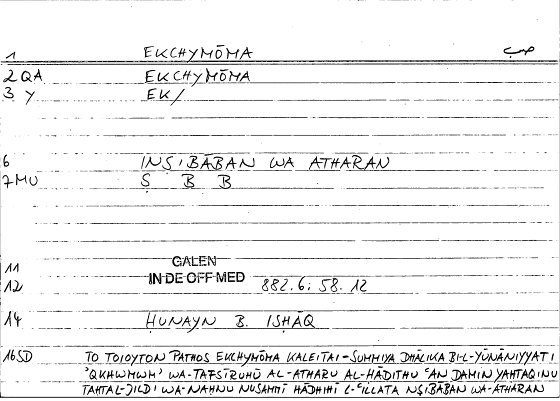 1 EKCHYMŌMA صب
2 QA EKCHYMŌMA
3 Y EK/
6 INṢIBĀBAN WA ATHARAN
7 MU Ṣ B B
11 GALEN
12 IN DE OFF MED 882.6; 58.12
14 ḤUNAYN B. ISḤĀQ
16 SD TO TOIOYTON PATHOS EKCHYMŌMA KALEITAI - SUMMIYA DHĀLIKA BI-L-YŪNĀNIYYATI
'QKHWMWM' WA-TAFSĪRUHŪ AL-ATHARU AL-ḤĀDITHU ʿAN DAMIN YAḤTAQINU
TAḤTAL-JILDI WA-NAḤNU NUSAMMĪ HĀDHIHĪ L-ʿILLATA NṢIBĀBAN WA-ATHARAN